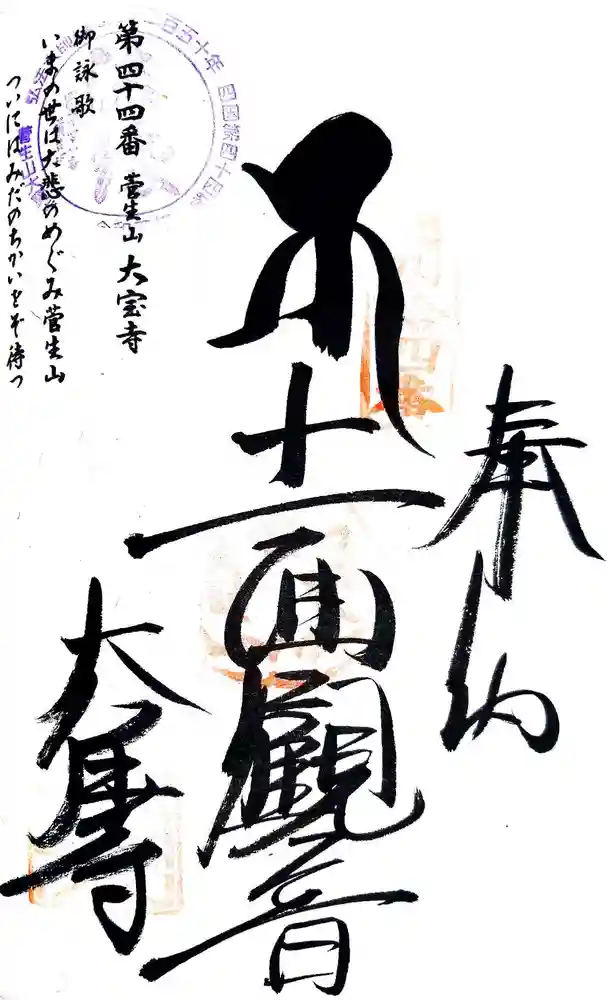 奉納
十一面観音
大宝寺
第四十四番 菅生山 大宝寺
御詠歌
いまの世は大悲のめぐみ菅生山
ついにはみだのちかいをぞ待つ
百五十年 四国第四十四番
菅生山大